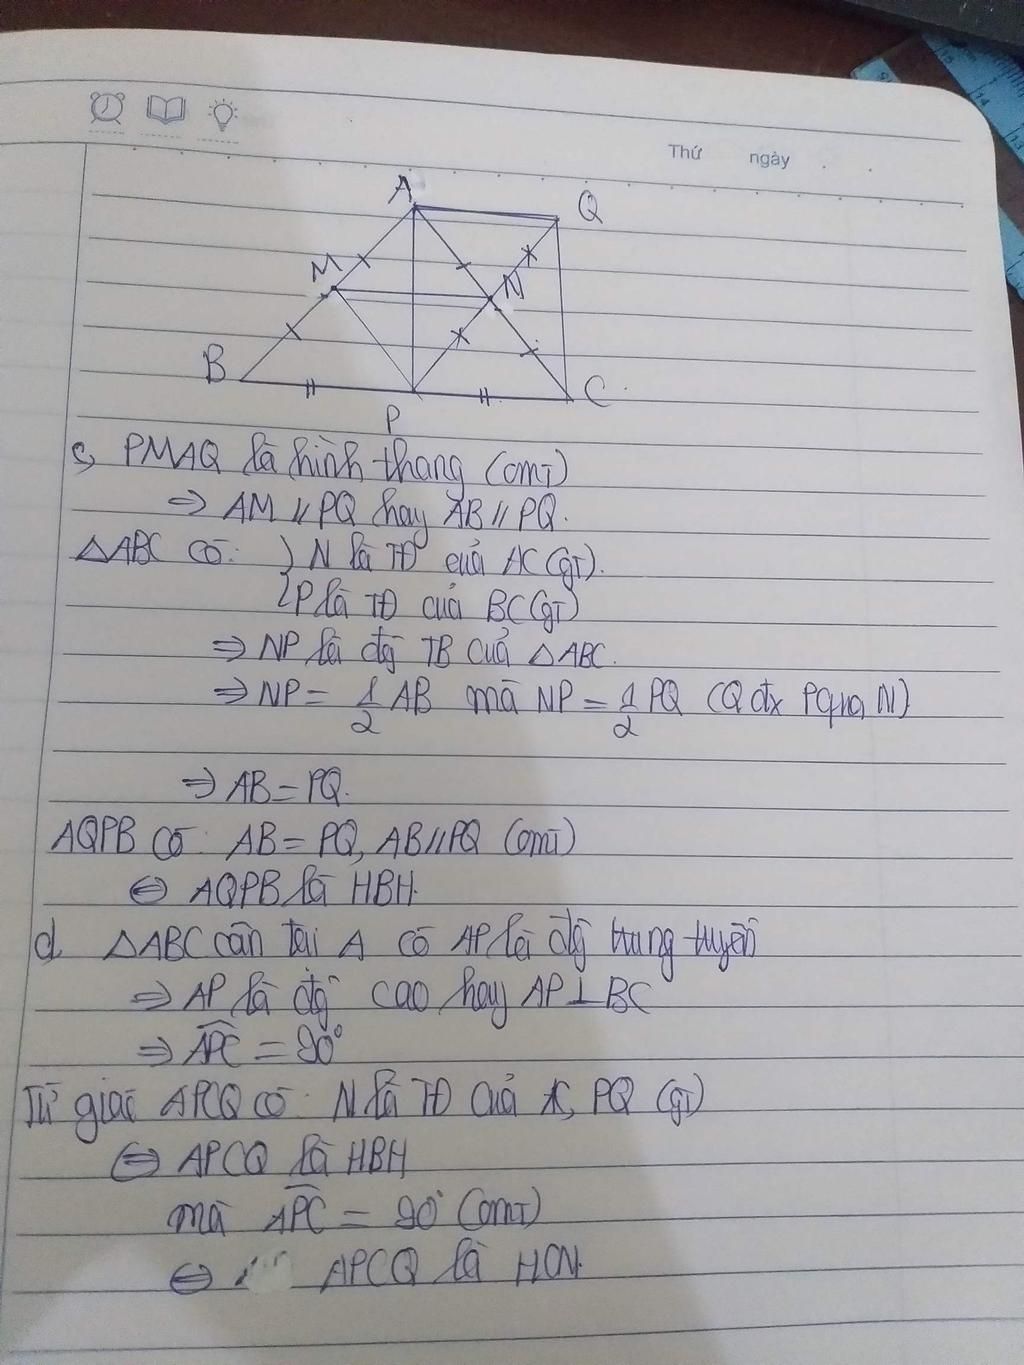 Thứ ngày
A
Q
M
N
B
P
C
c, PMAQ là hình thang (cmt)
⇒ AM // PQ hay AB // PQ.
△ABC có: { N là TĐ của AC (gt).
{ P là TĐ của BC (gt)
⇒ NP là đg TB của △ABC.
⇒ NP = 1/2 AB mà NP = 1/2 PQ (Q đx P qua N)
⇒ AB = PQ.
AQPB có: AB = PQ, AB // PQ (cmt)
⇔ AQPB là HBH.
d △ABC cân tại A có AP là đg trung tuyến
⇒ AP là đg cao hay AP ⊥ BC
⇒ APC = 90°
Tứ giác APCQ có: N là TĐ của AC, PQ (gt)
⇔ APCQ là HBH
mà APC = 90° (cmt)
⇔ APCQ là HCN.